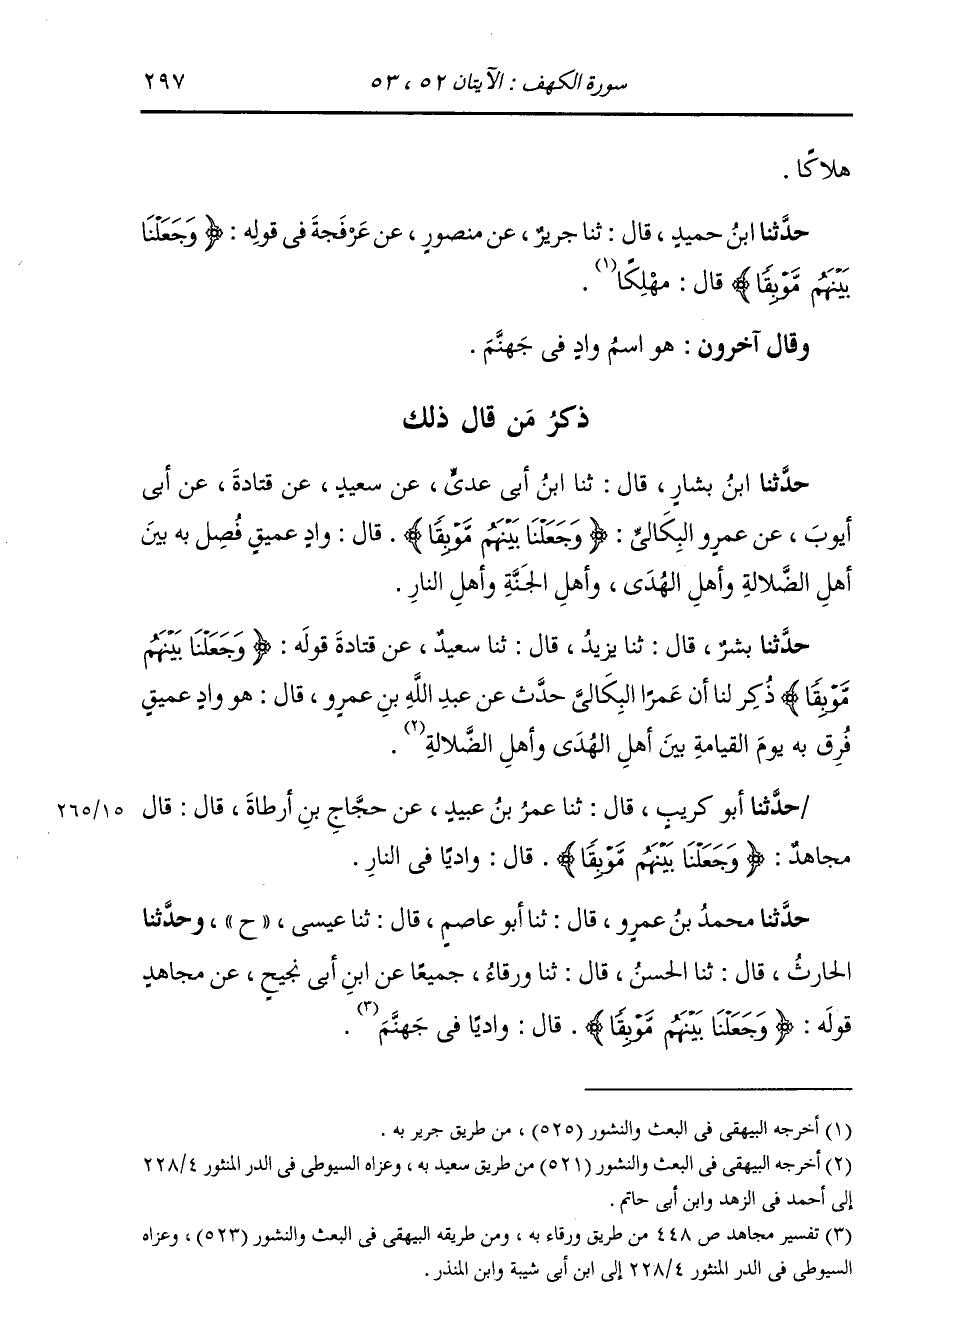 سورة الكهف : الآيتان ٥٢ ، ٥٣
٢٩٧
هلاكًا .
حدَّثنا ابنُ حميدٍ ، قال : ثنا جريرٌ ، عن منصورٍ ، عن عَرْفجةَ فى قولِه : ﴿ وَجَعَلْنَا
بَيْنَهُم مَّوْبِقًا ﴾ قال : مهْلِكًا(١) .
وقال آخرون : هو اسمُ وادٍ فى جَهنَّمَ .
ذكرُ مَن قال ذلك
حدَّثنا ابنُ بشارٍ ، قال : ثنا ابنُ أبى عدىٍّ ، عن سعيدٍ ، عن قتادةَ ، عن أبى
أيوبَ ، عن عمرٍو البِكَالىِّ : ﴿ وَجَعَلْنَا بَيْنَهُم مَّوْبِقًا ﴾ . قال : وادٍ عميقٍ فُصِل به بينَ
أهلِ الضَّلالةِ وأهلِ الهُدَى ، وأهلِ الجَنَّةِ وأهلِ النارِ .
حدَّثنا بشرٌ ، قال : ثنا يزيدُ ، قال : ثنا سعيدٌ ، عن قتادةَ قولَه : ﴿ وَجَعَلْنَا بَيْنَهُم
مَّوْبِقًا ﴾ ذُكِر لنا أن عَمرًا البِكَالىَّ حدَّث عن عبدِ اللَّهِ بنِ عمرٍو ، قال : هو وادٍ عميقٍ
فُرِق به يومَ القيامةِ بينَ أهلِ الهُدَى وأهلِ الضَّلالةِ(٢) .
/حدَّثنا أبو كريبٍ ، قال : ثنا عمرُ بنُ عبيدٍ ، عن حجَّاجِ بنِ أرطاةَ ، قال : قال
٢٦٥/١٥
مجاهدٌ : ﴿ وَجَعَلْنَا بَيْنَهُم مَّوْبِقًا ﴾ . قال : واديًا فى النارِ .
حدَّثنا محمدُ بنُ عمرٍو ، قال : ثنا أبو عاصمٍ ، قال : ثنا عيسى ، « ح » ، وحدَّثنا
الحارثُ ، قال : ثنا الحسنُ ، قال : ثنا ورقاءُ ، جميعًا عن ابنِ أبى نجيحٍ ، عن مجاهدٍ
قولَه : ﴿ وَجَعَلْنَا بَيْنَهُم مَّوْبِقًا ﴾ . قال : واديًا فى جَهنَّمَ(٣) .
(١) أخرجه البيهقى فى البعث والنشور (٥٢٥) ، من طريق جرير به .
(٢) أخرجه البيهقى فى البعث والنشور (٥٢١) من طريق سعيد به ، وعزاه السيوطى فى الدر المنثور ٢٢٨/٤
إلى أحمد فى الزهد وابن أبى حاتم .
(٣) تفسير مجاهد ص ٤٤٨ من طريق ورقاء به ، ومن طريقه البيهقى فى البعث والنشور (٥٢٣) ، وعزاه
السيوطى فى الدر المنثور ٢٢٨/٤ إلى ابن أبى شيبة وابن المنذر .